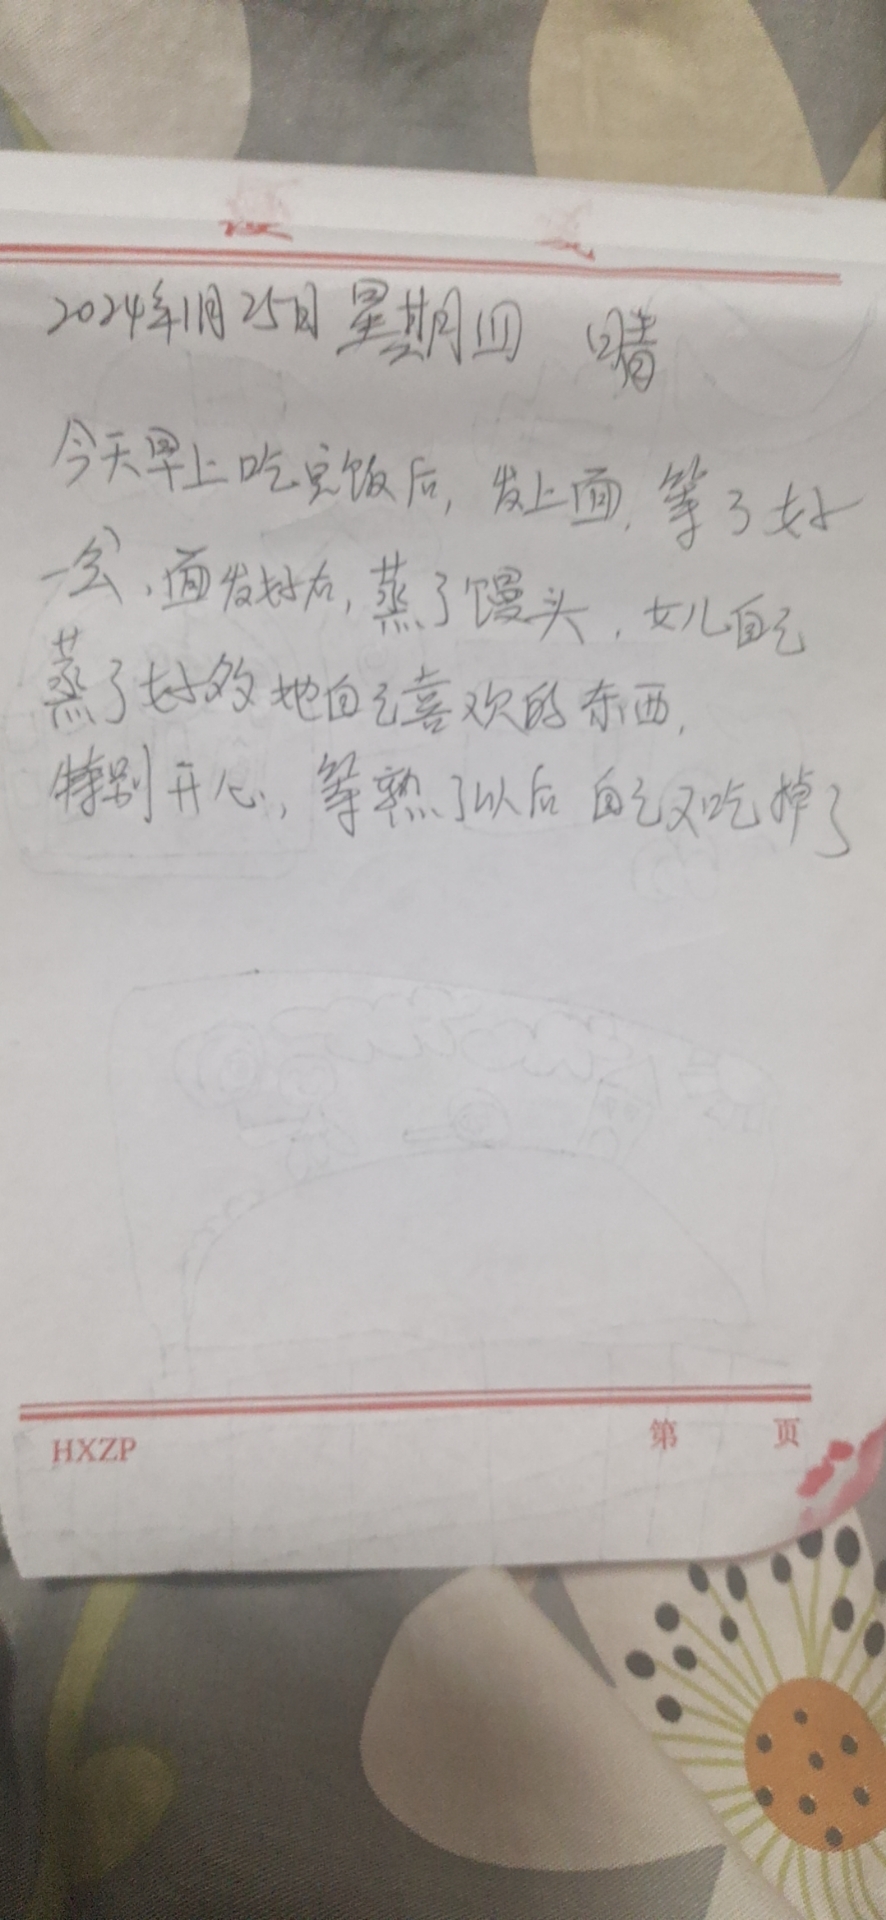 2024年1月25日 星期四 晴
今天早上吃完饭后，发上面，等了好
一会，面发好后，蒸了馒头，女儿自己
蒸了好多她自己喜欢的东西，
特别开心，等熟了以后 自己又吃掉了
HXZP 第 页